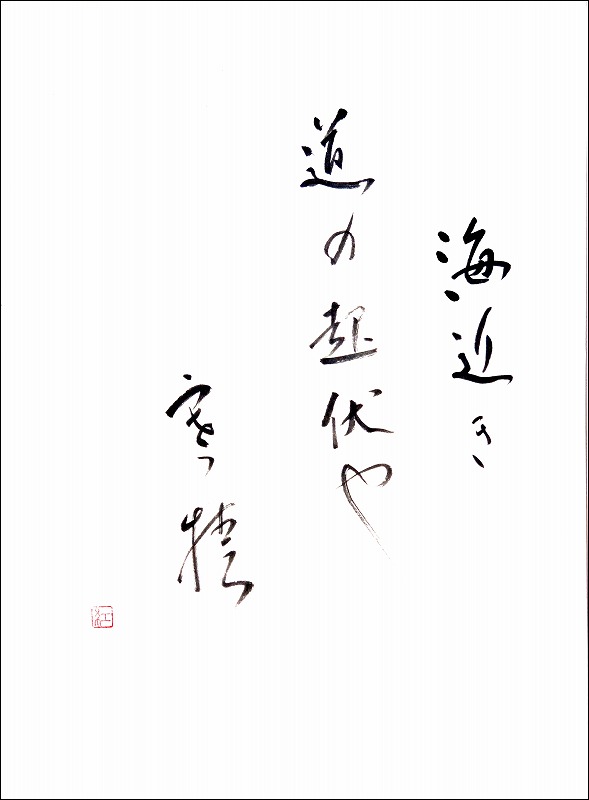 海近き
道の起伏や
寒椿